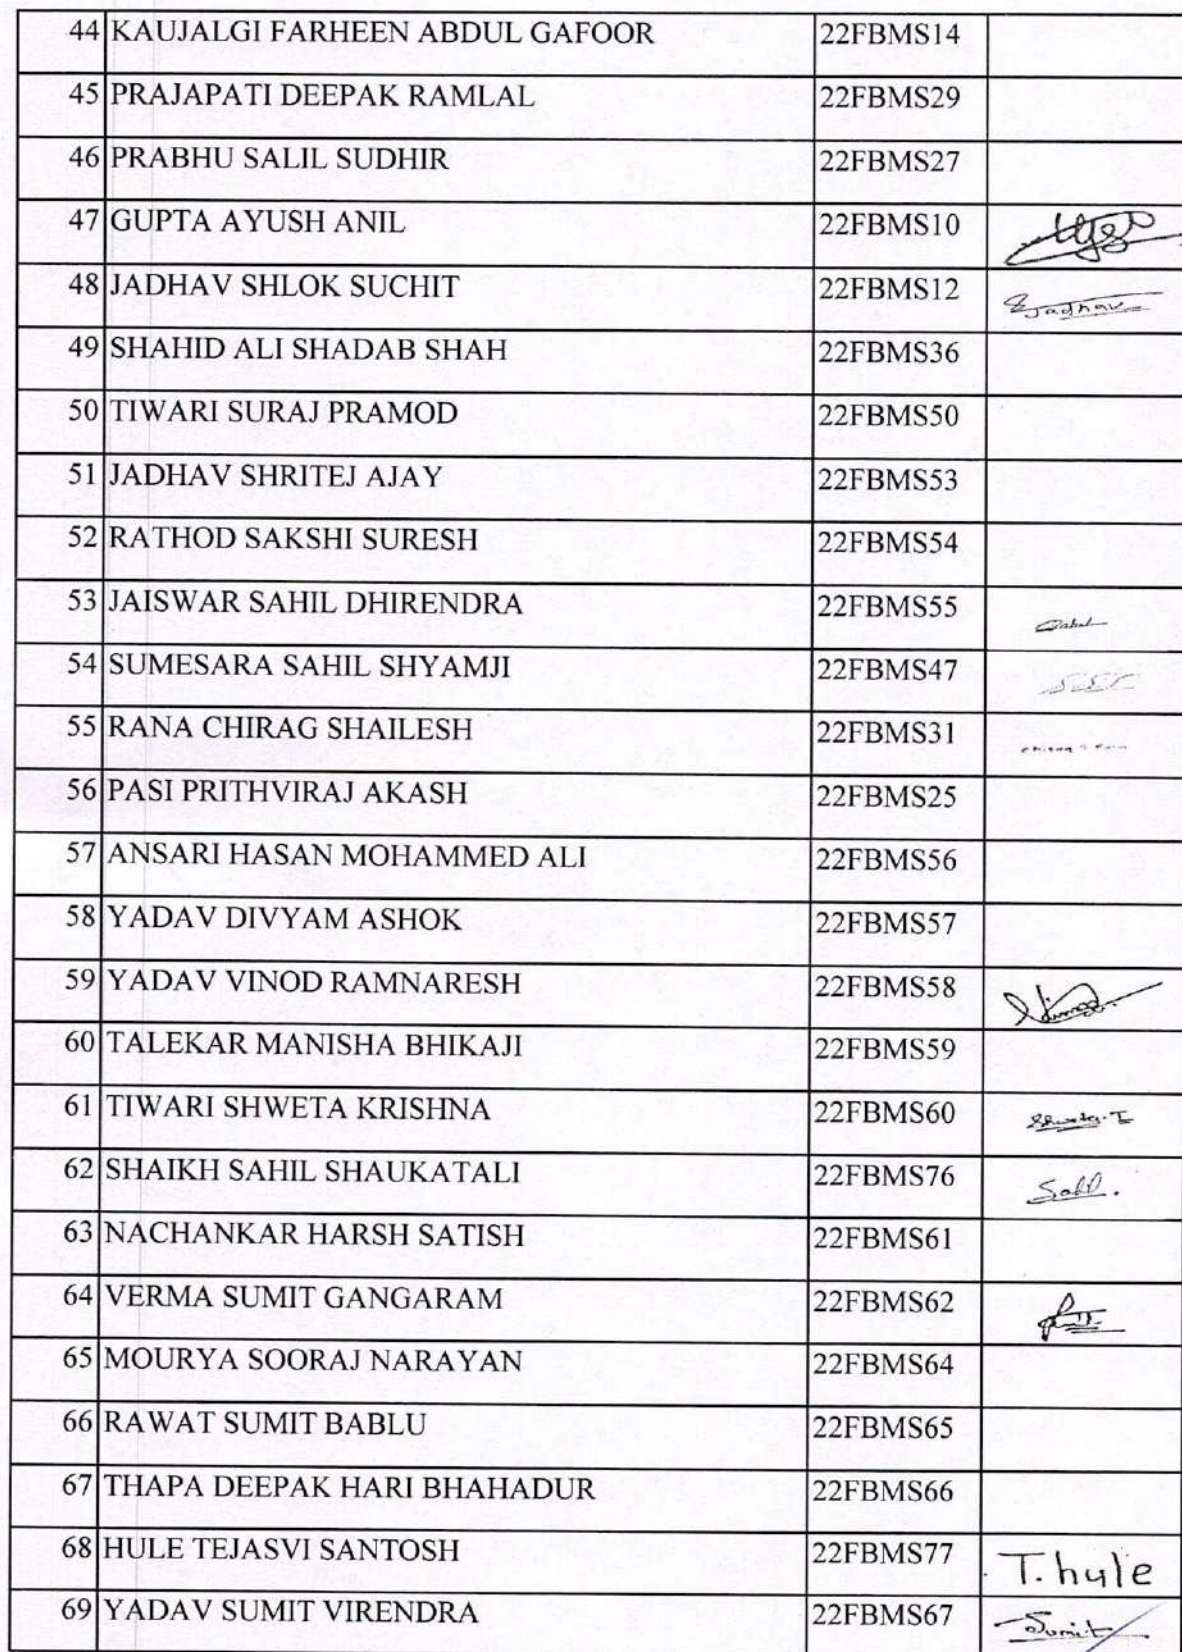 44 KAUJALGI FARHEEN ABDUL GAFOOR 22FBMS14
45 PRAJAPATI DEEPAK RAMLAL 22FBMS29
46 PRABHU SALIL SUDHIR 22FBMS27
47 GUPTA AYUSH ANIL 22FBMS10
48 JADHAV SHLOK SUCHIT 22FBMS12 SJadhav
49 SHAHID ALI SHADAB SHAH 22FBMS36
50 TIWARI SURAJ PRAMOD 22FBMS50
51 JADHAV SHRITEJ AJAY 22FBMS53
52 RATHOD SAKSHI SURESH 22FBMS54
53 JAISWAR SAHIL DHIRENDRA 22FBMS55
54 SUMESARA SAHIL SHYAMJI 22FBMS47
55 RANA CHIRAG SHAILESH 22FBMS31
56 PASI PRITHVIRAJ AKASH 22FBMS25
57 ANSARI HASAN MOHAMMED ALI 22FBMS56
58 YADAV DIVYAM ASHOK 22FBMS57
59 YADAV VINOD RAMNARESH 22FBMS58
60 TALEKAR MANISHA BHIKAJI 22FBMS59
61 TIWARI SHWETA KRISHNA 22FBMS60 Shweta.T
62 SHAIKH SAHIL SHAUKATALI 22FBMS76
63 NACHANKAR HARSH SATISH 22FBMS61
64 VERMA SUMIT GANGARAM 22FBMS62
65 MOURYA SOORAJ NARAYAN 22FBMS64
66 RAWAT SUMIT BABLU 22FBMS65
67 THAPA DEEPAK HARI BHAHADUR 22FBMS66
68 HULE TEJASVI SANTOSH 22FBMS77 T.hule
69 YADAV SUMIT VIRENDRA 22FBMS67 Sumit